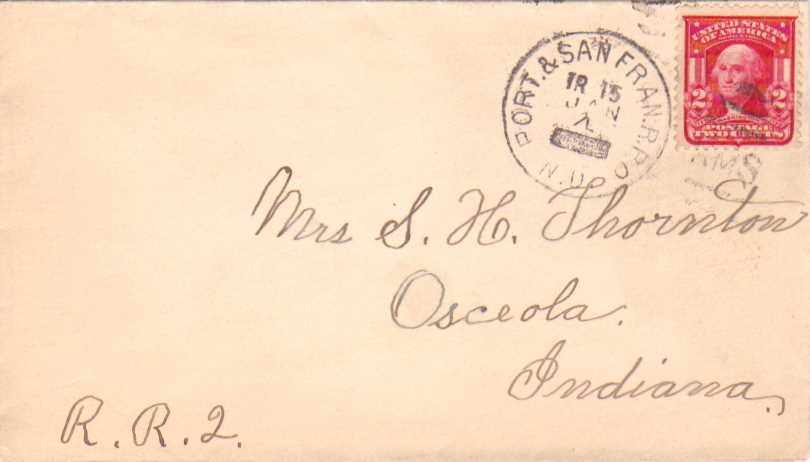 PORT. & SAN FRAN. R.P.O.
TR 15
JAN
N.D.
UNITED STATES
OF AMERICA
2 2
POSTAGE
TWO CENTS
Mrs S. H. Thornton
Osceola.
Indiana,
R. R. 2.